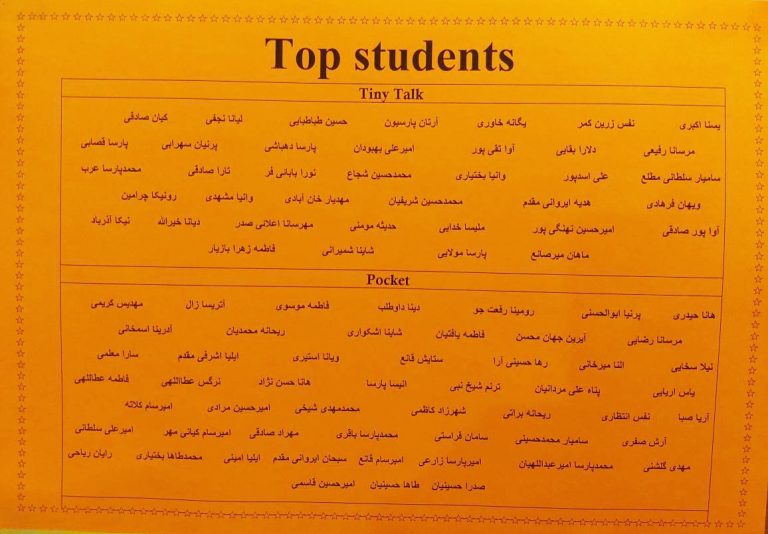 Top students
Tiny Talk
یسنا اکبری نفس زرین کمر یگانه خاوری آرتان پارسیون حسین طباطبایی لیانا نجفی کیان صادقی
مرسانا رفیعی دلارا بقایی آوا تقی پور امیرعلی بهبودان پارسا دهباشی پرنیان سهرابی پارسا قصابی
سامیار سلطانی مطلع علی اسدپور وانیا بختیاری محمدحسین شجاع نورا بابائی فر تارا صادقی محمدپارسا عرب
ویهان فرهادی هدیه ایروانی مقدم محمدحسین شریفیان مهدیار خان آبادی وانیا مشهدی رونیکا چرامین
آوا پور صادقی امیرحسین نهنگی پور ملیسا خدایی حدیثه مومنی مهرسانا اعلائی صدر دیانا خیرالله نیکا آذرباد
ماهان میرصانع پارسا مولایی شاینا شمیرانی فاطمه زهرا بازیار
Pocket
هانا حیدری پرنیا ابوالحسنی رومینا رفعت جو دینا داوطلب فاطمه موسوی آتریسا زال مهدیس کریمی
مرسانا رضایی آیرین جهان محسن فاطمه یافتیان شاینا اشکواری ریحانه محمدیان آدرینا اسمخانی
لیلا سخایی النا میرخانی رها حسینی آرا ستایش قانع ویانا استیری ایلیا اشرفی مقدم سارا معلمی
یاس اربابی پناه علی مردانیان ترنم شیخ نبی الیسا پارسا هانا حسن نژاد نرگس عطااللهی فاطمه عطاللهی
آریا صبا نفس انتظاری ریحانه براتی شهرزاد کاظمی محمدمهدی شیخی امیرحسین مرادی امیرسام کلاته
آرش صفری سامیار محمدحسینی سامان فراستی محمدپارسا باقری مهراد صادقی امیرسام کیانی مهر امیرعلی سلطانی
مهدی گلشنی محمدپارسا امیرعبداللهیان امیرپارسا زارعی امیرسام قانع سبحان ایروانی مقدم ایلیا امینی محمدطاها بختیاری رایان ریاحی
صدرا حسینیان طاها حسینیان امیرحسین قاسمی